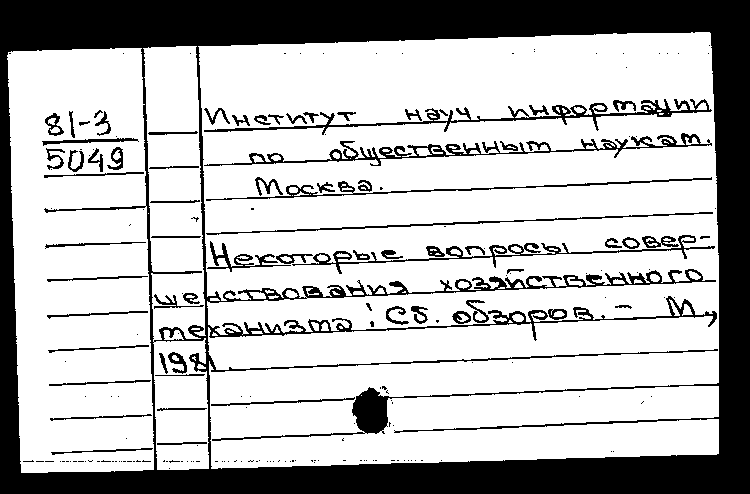 81-3
5049
Институт науч. информации
по общественным наукам.
Москва.
Некоторые вопросы совер-
шенствования хозяйственного
механизма : Сб. обзоров. - М.,
1981.